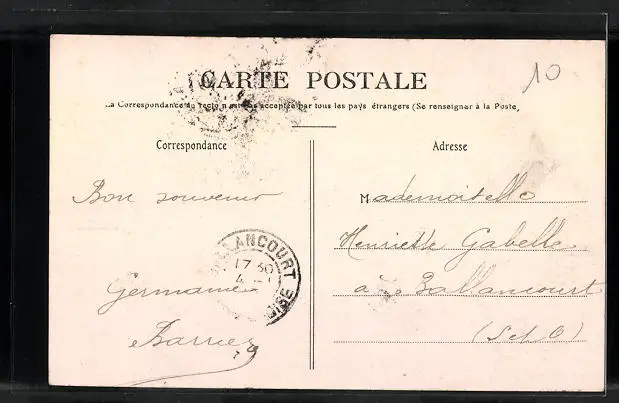 CARTE POSTALE
10
La Correspondance au recto n'est pas acceptée par tous les pays étrangers (Se renseigner à la Poste)
Correspondance
Adresse
Bon souvenir
Germaine
Barrier
Mademoiselle
Henriette Gabelle
à Ballancourt
(S et O)
LANCOURT
17 30
4
OISE